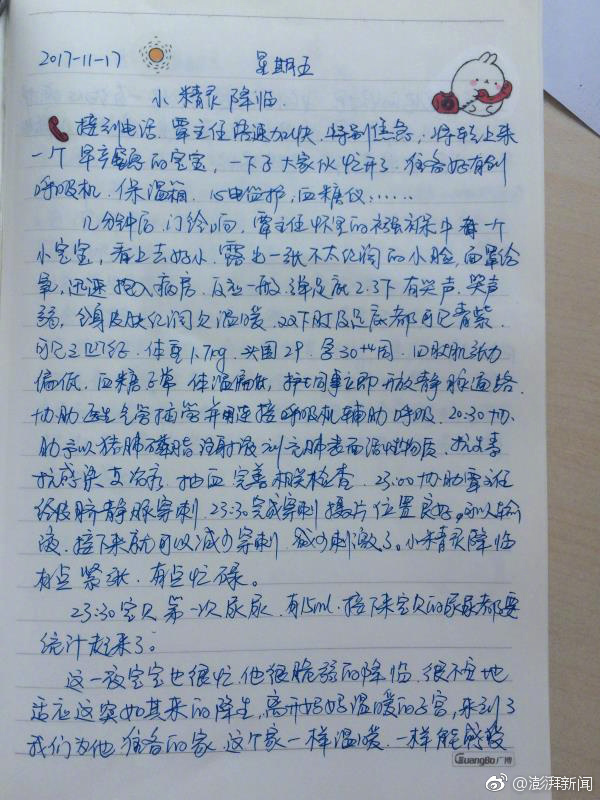 2017-11-17 星期五
小精灵降临.
接到电话,覃主任语速加快,特别焦急,将转上来
一个早产窒息的宝宝,一下子大家伙忙开了.准备好有创
呼吸机.保温箱.心电监护,血糖仪……
几分钟后,门铃响,覃主任怀里的襁褓中有一个
小宝宝,看上去好小.露出一张不太红润的小脸,面罩给
氧,迅速抱入病房.反应一般,弹足底2.3下有哭声.哭声
弱,全身皮肤红润欠温暖.双下肢及足底都可见青紫.
可见三凹征.体重1.7kg.头围29.孕30+周.四肢肌张力
偏低.血糖正常 体温偏低,护士同事立即开放静脉通路.
协助医生气管插管并用连接呼吸机辅助呼吸.20:30协
助予以猪肺磷脂注射液补充肺表面活性物质.抗生素
抗感染支治疗.抽血完善相关检查.23:00协助覃主任
给脐静脉穿刺.23:30完成穿刺.摄片位置良好,可以输
液.接下来就可以减少穿刺.减少刺激了.小精灵降临
有点紧张.有点忙碌。
23:30宝贝第一次尿尿.有15ml.接下来宝贝的尿尿都要
统计起来了。
这一夜宝宝也很忙.他很脆弱的降临.很不安地
适应这突如其来的降生,离开妈妈温暖的子宫,来到了
我们为他准备的家.这个家一样温暖.一样能感受
GuangBo广博
@澎湃新闻